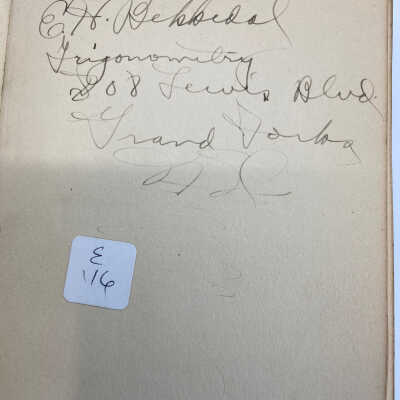 E. H. Bekkedal
Trigonometry
808 Lewis Blvd.
Grand Forks
N D
E
116